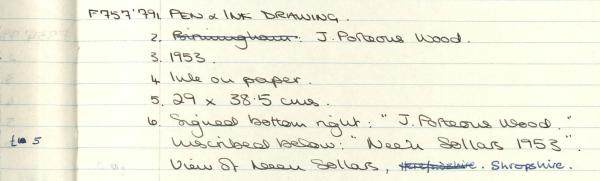 F757'79. 1. PEN & INK DRAWING.
2. Birmingham. J. Porteous Wood.
3. 1953.
4. Ink on paper.
5. 29 x 38.5 cms.
6. Signed bottom right: "J. Porteous Wood."
Inscribed below: "Neen Sollars 1953".
View of Neen Sollars, Herefordshire. Shropshire.